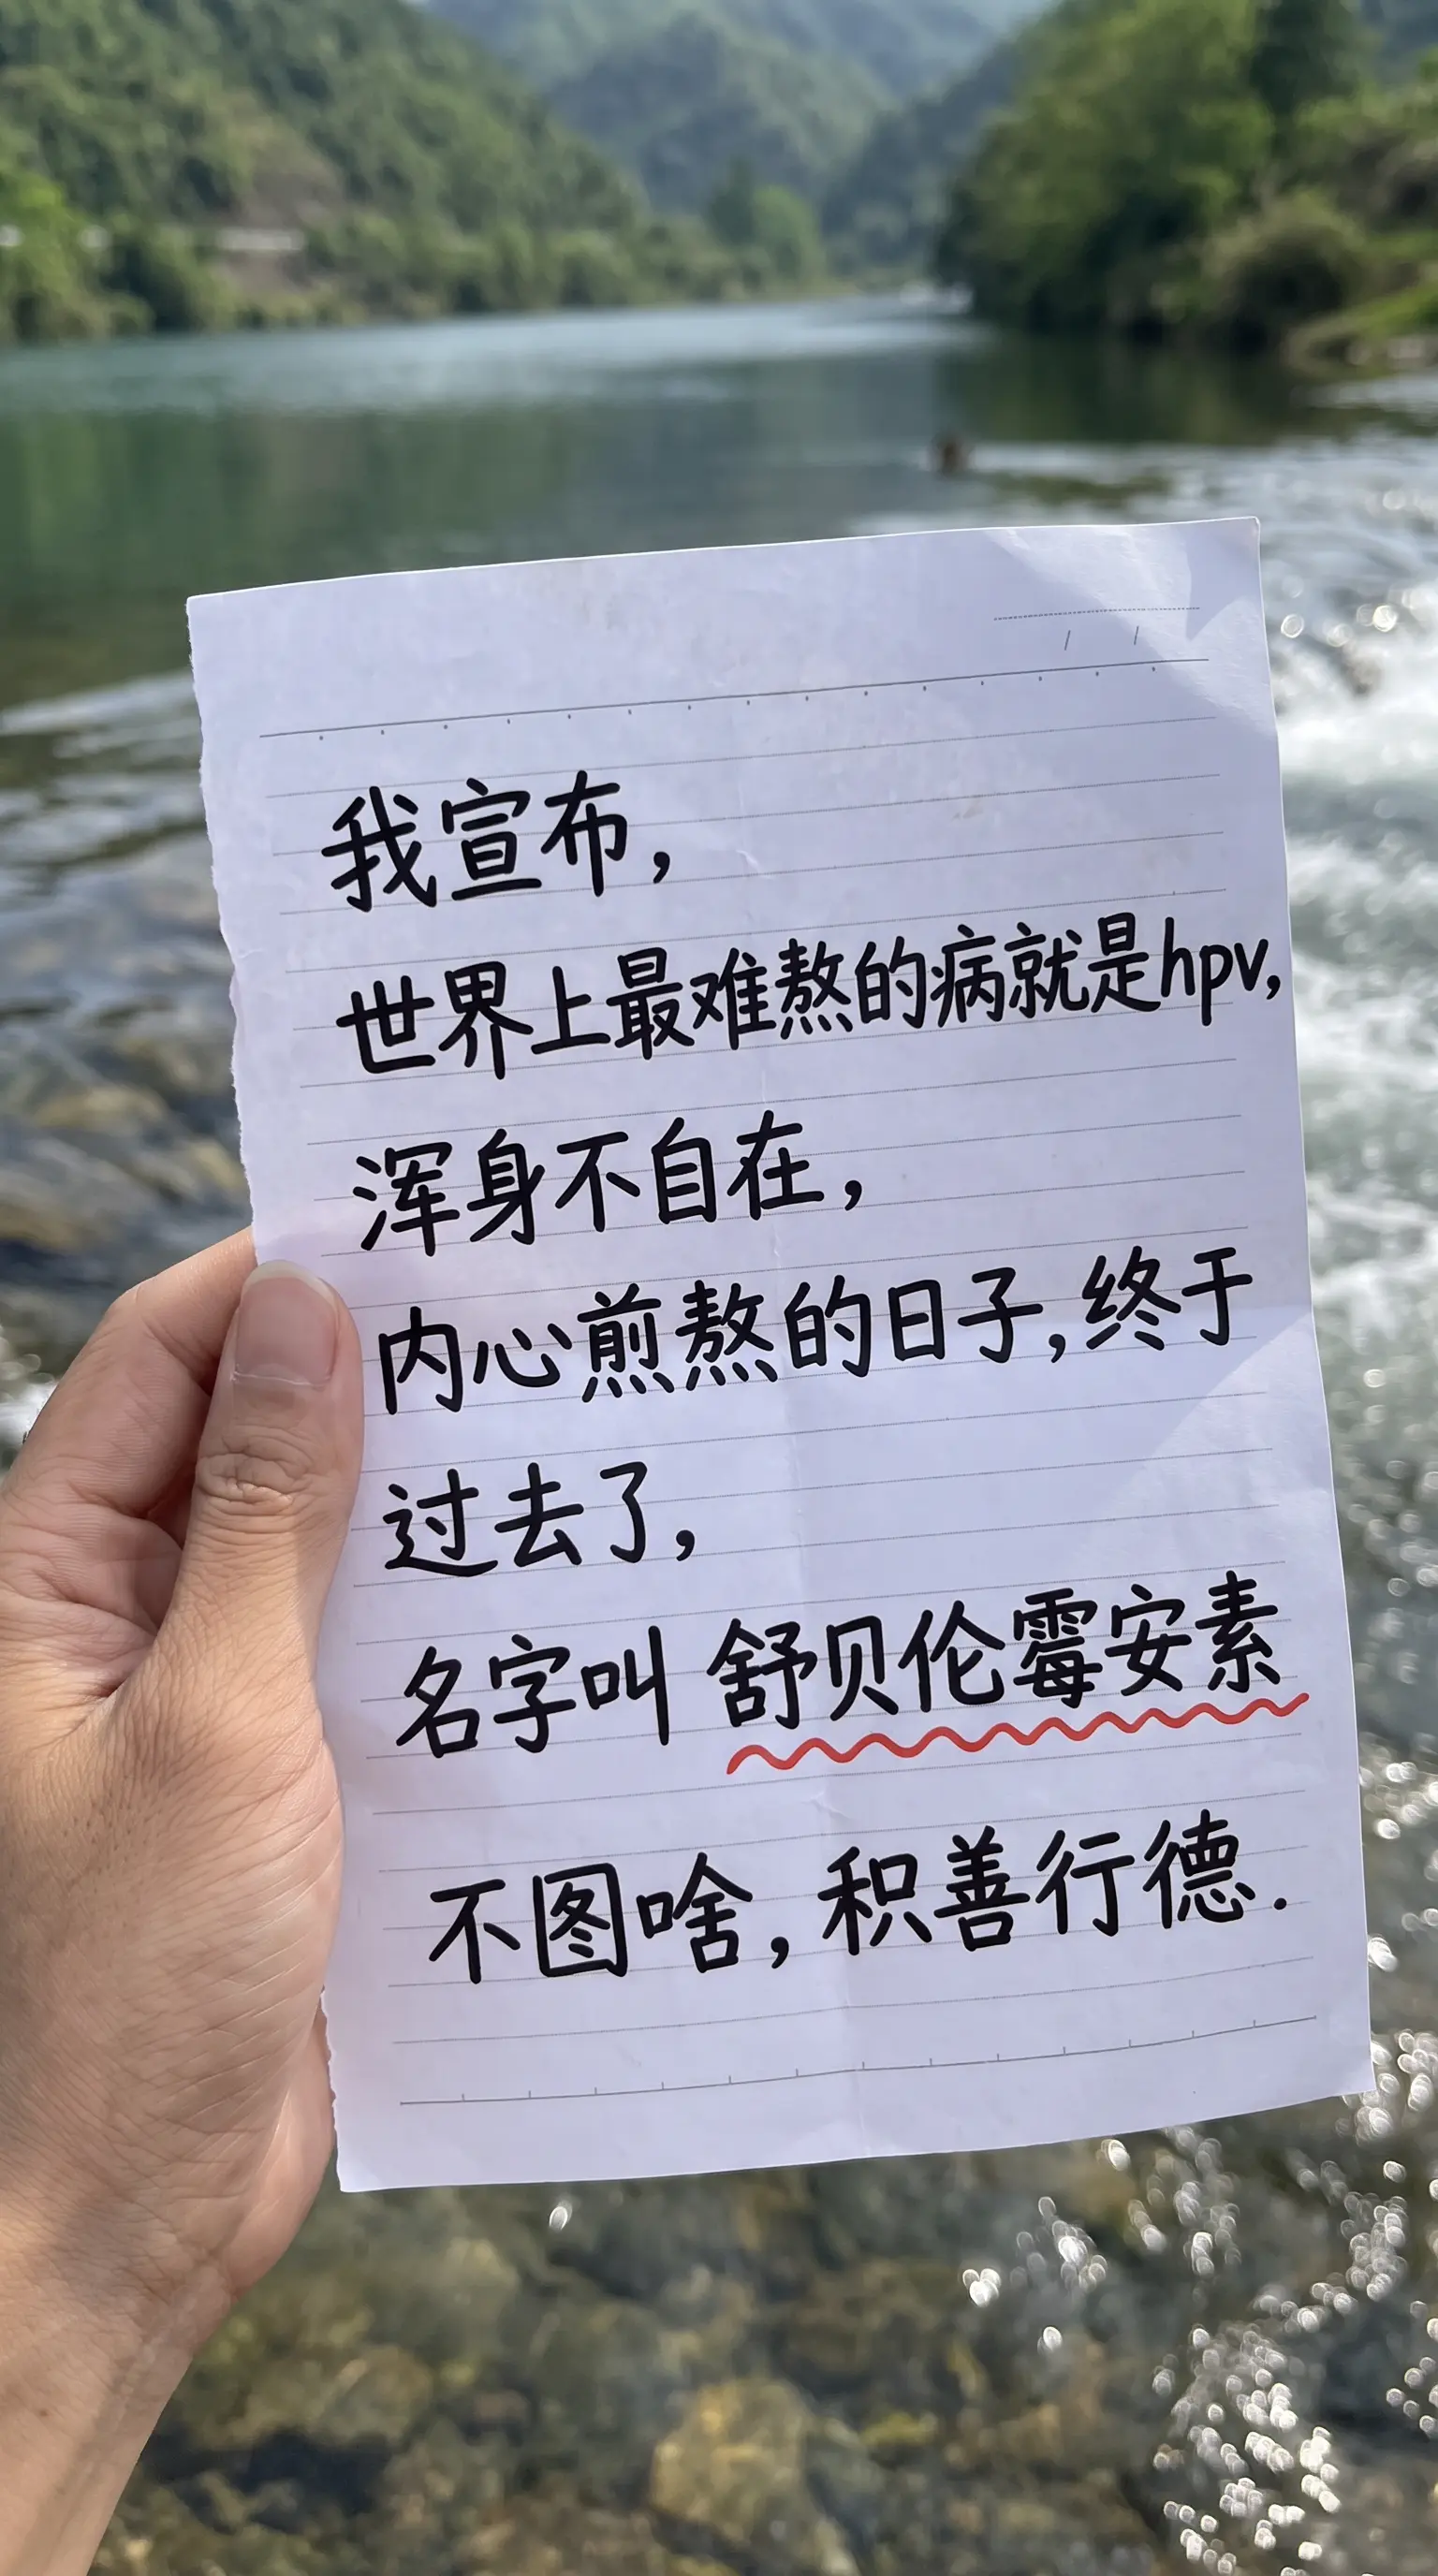 我宣布，
世界上最难熬的病就是hpv,
浑身不自在，
内心煎熬的日子,终于
过去了，
名字叫 舒贝伦霉安素
不图啥，积善行德.